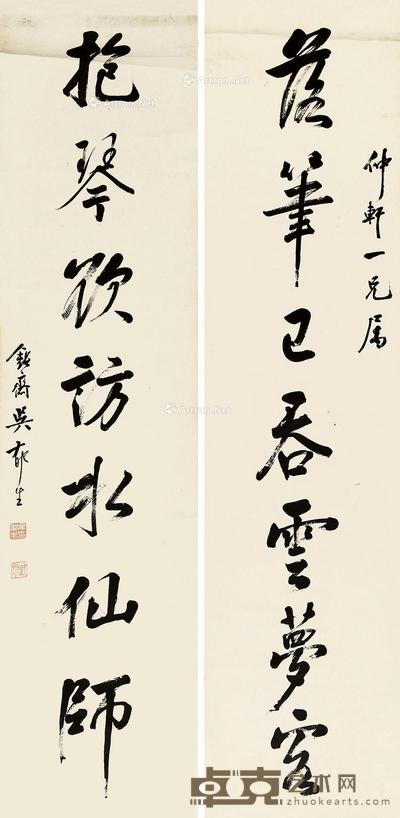 仲軒一兄属
落筆已吞雲夢客
抱琴欲訪水仙師
鈍齋吳郁生
Artron.Net
卓克艺术网
www.zhuokearts.com